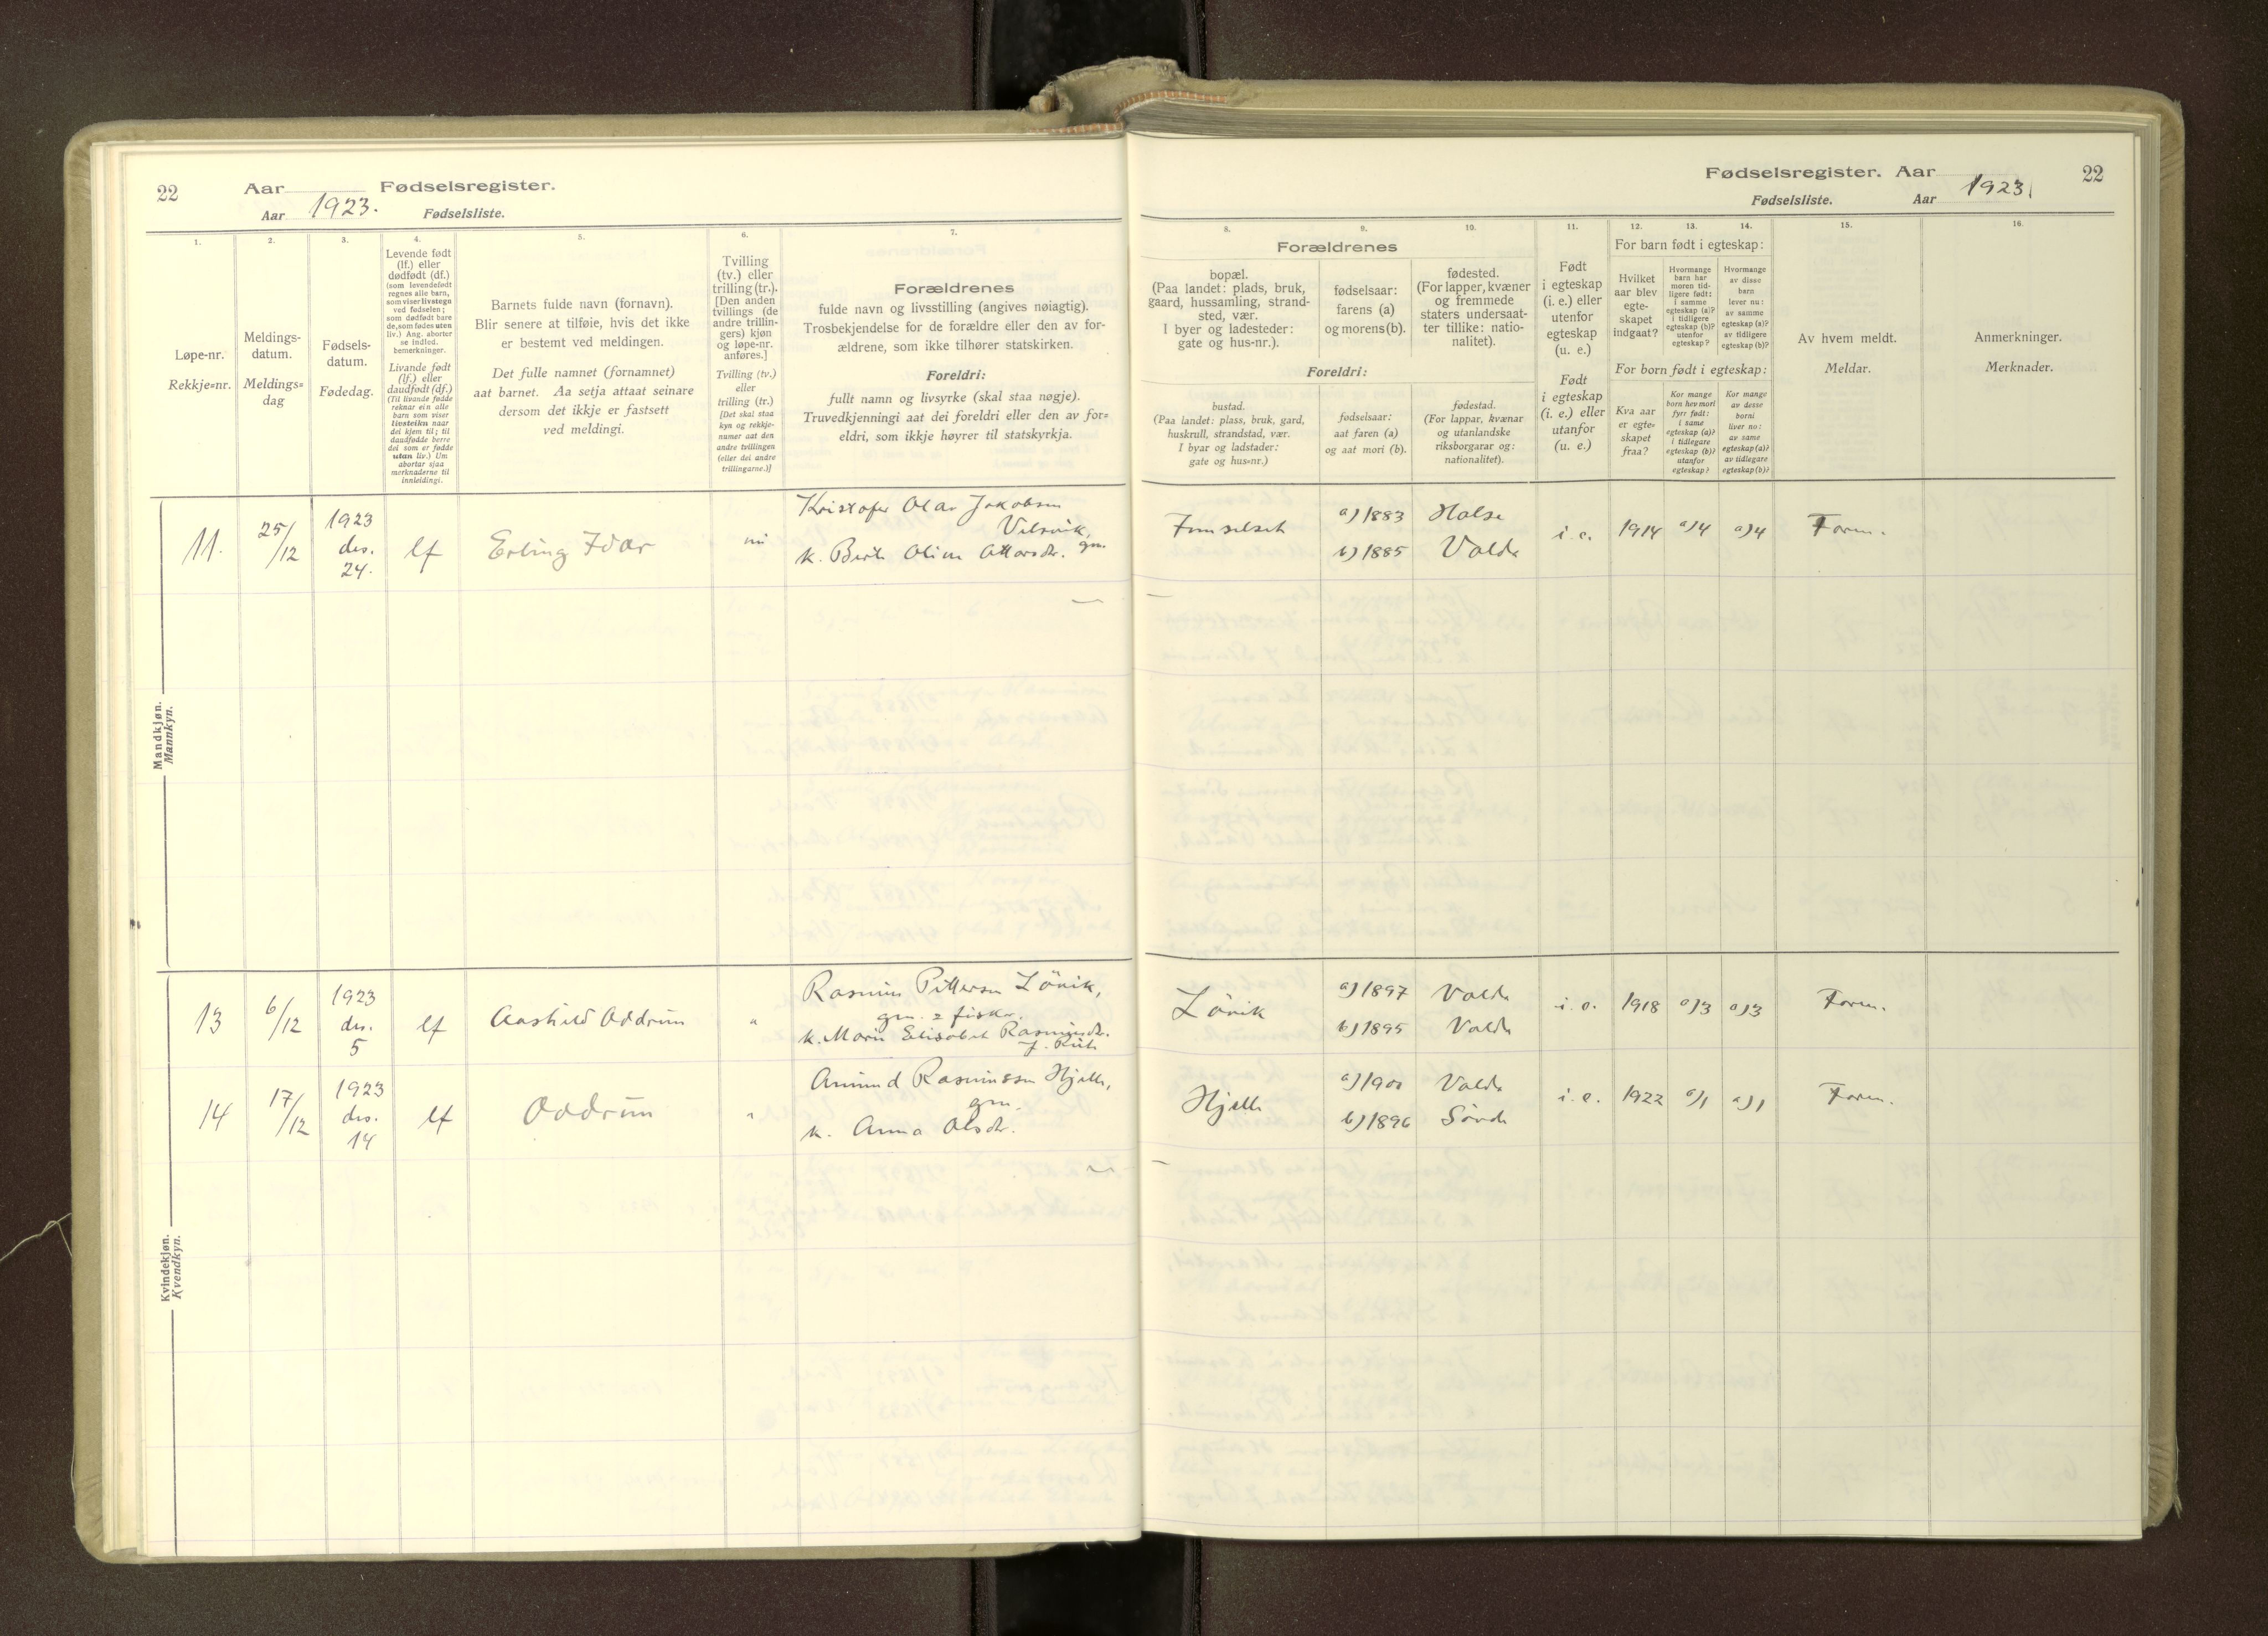 22
Aar
Fødselsregister.
Aar 1923.
Fødselsliste.
1.
2.
3.
4.
5.
6.
7.
Løpe-nr.
Rekkje=nr.
Meldings-
datum.
Meldings=
dag
Fødsels-
datum.
Fødedag.
Levende født
(lf.) eller
dødfødt (df.)
(som levendefødt
regnes alle barn,
som viser livstegn
ved fødselen;
som dødfødt bare
de, som fødes uten
liv.) Ang. aborter
se indled.
bemerkninger.
Livande født
(lf.) eller
daudfødt (df.)
(Til livande fødde
reknar ein alle
barn som viser
livsteikn naar
dei kjem til; til
daudfødde berre
dei som er fødde
utan liv.) Um
abortar sjaa
merknaderne til
innleidingi.
Barnets fulde navn (fornavn).
Blir senere at tilføie, hvis det ikke
er bestemt ved meldingen.
Det fulle namnet (fornamnet)
aat barnet. Aa setja attaat seinare
dersom det ikkje er fastsett
ved meldingi.
Tvilling
(tv.) eller
trilling (tr.).
[Den anden
tvillings (de
andre trillin-
gers) kjøn
og løpe-nr.
anføres.]
Tvilling (tv.)
eller
trilling (tr.)
[Det skal staa
kyn og rekkje-
numer aat den
andre tvillingen
(eller dei andre
trillingarne.)]
Forældrenes
fulde navn og livsstilling (angives nøiagtig).
Trosbekjendelse for de forældre eller den av for-
ældrene, som ikke tilhører statskirken.
Foreldri:
fullt namn og livsyrke (skal staa nøgje).
Truvedkjenningi aat dei foreldri eller den av for=
eldri, som ikkje høyrer til statskyrkja.
Mandkjøn.
Mannkyn.
11.
25/12
1923
des.
24.
lf
Erling Ivar
Kristofer Olav Jakobsen
gm.
k. Berte Oline
13
6/12
1923
des.
5
lf
Aashild Oddrun
"
Rasmus Pettersen Løvik,
gm. & fisker.
k. Marie Elisabet Rasmusdr.
14
17/12
1923
des.
14
lf
Oddrun
"
Amund Rasmussen Hjelle,
gm.
k. Anna Olsdr.
Kvindekjøn.
Kvendkyn.
Fødselsregister. Aar
22
Fødselsliste.
Aar 1923.
8.
9.
10.
11.
12.
13.
14.
15.
16.
Forældrenes
bopæl.
(Paa landet: plads, bruk,
gaard, hussamling, strand-
sted, vær.
I byer og ladesteder:
gate og hus-nr.).
fødselsaar:
farens (a)
og morens (b).
fødested.
(For lapper, kvæner
og fremmede
staters undersaat-
ter tillike: natio-
nalitet).
Foreldri:
bustad.
(Paa landet: plass, bruk, gard,
huskrull, strandstad, vær.
I byar og ladstader:
gate og hus=nr.)
fødselsaar:
aat faren (a)
og aat mori (b).
fødestad.
(For lappar, kvænar
og utanlandske
riksborgarar og:
nationalitet).
Født
i egteskap
(i. e.) eller
utenfor
egteskap
(u. e.)
Født
i egteskap
(i. e.) eller
utanfor
(u. e.)
For barn født i egteskap:
Hvilket
aar blev
egte-
skapet
indgaat?
Hvormange
barn har
moren tid-
ligere født;
i samme
egteskap (a)?
i tidligere
egteskap (b)?
utenfor
egteskap?
Hvormange
av disse
barn
lever nu:
av samme
egteskap (a)?
av tidligere
egteskap (b)?
For born født i egteskap:
Kva aar
er egte=
skapet
fraa?
Kor mange
born hev mori
fyrr født:
i same
egteskap (a)?
i tidlegare
egteskap (b)?
utanfor
egteskap?
Kor mange
av desse
borni
liver no:
av same
egteskap (a)?
av tidlegare
egteskap (b)?
Av hvem meldt.
Meldar.
Anmerkninger.
Merknader.
a) 1883
b) 1885
Halse
Volda
i. e.
1914
a) 4
a) 4
Faren.
Løvik
a) 1897
b) 1895
Volda
Volda
i. e.
1918
a) 3
a) 3
Faren.
Hjelle
a) 1900
b) 1896
Volda
Sørde
i. e.
1922
a) 1
a) 1
Faren.